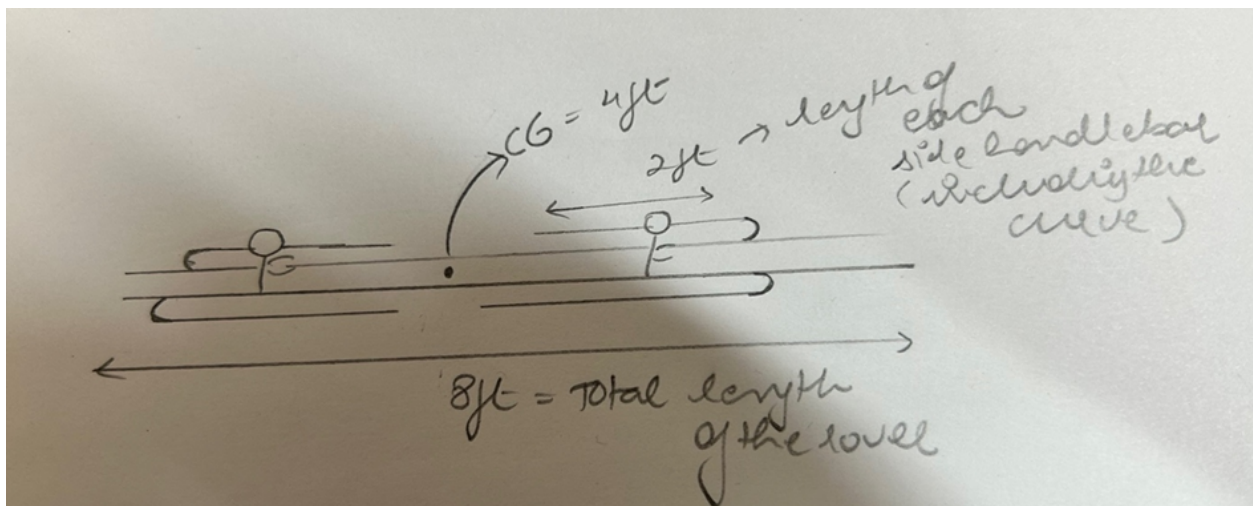 CG = 4ft
2ft → length of
each
side handlebar
(including the
curve)
8ft = Total length
of the lovel